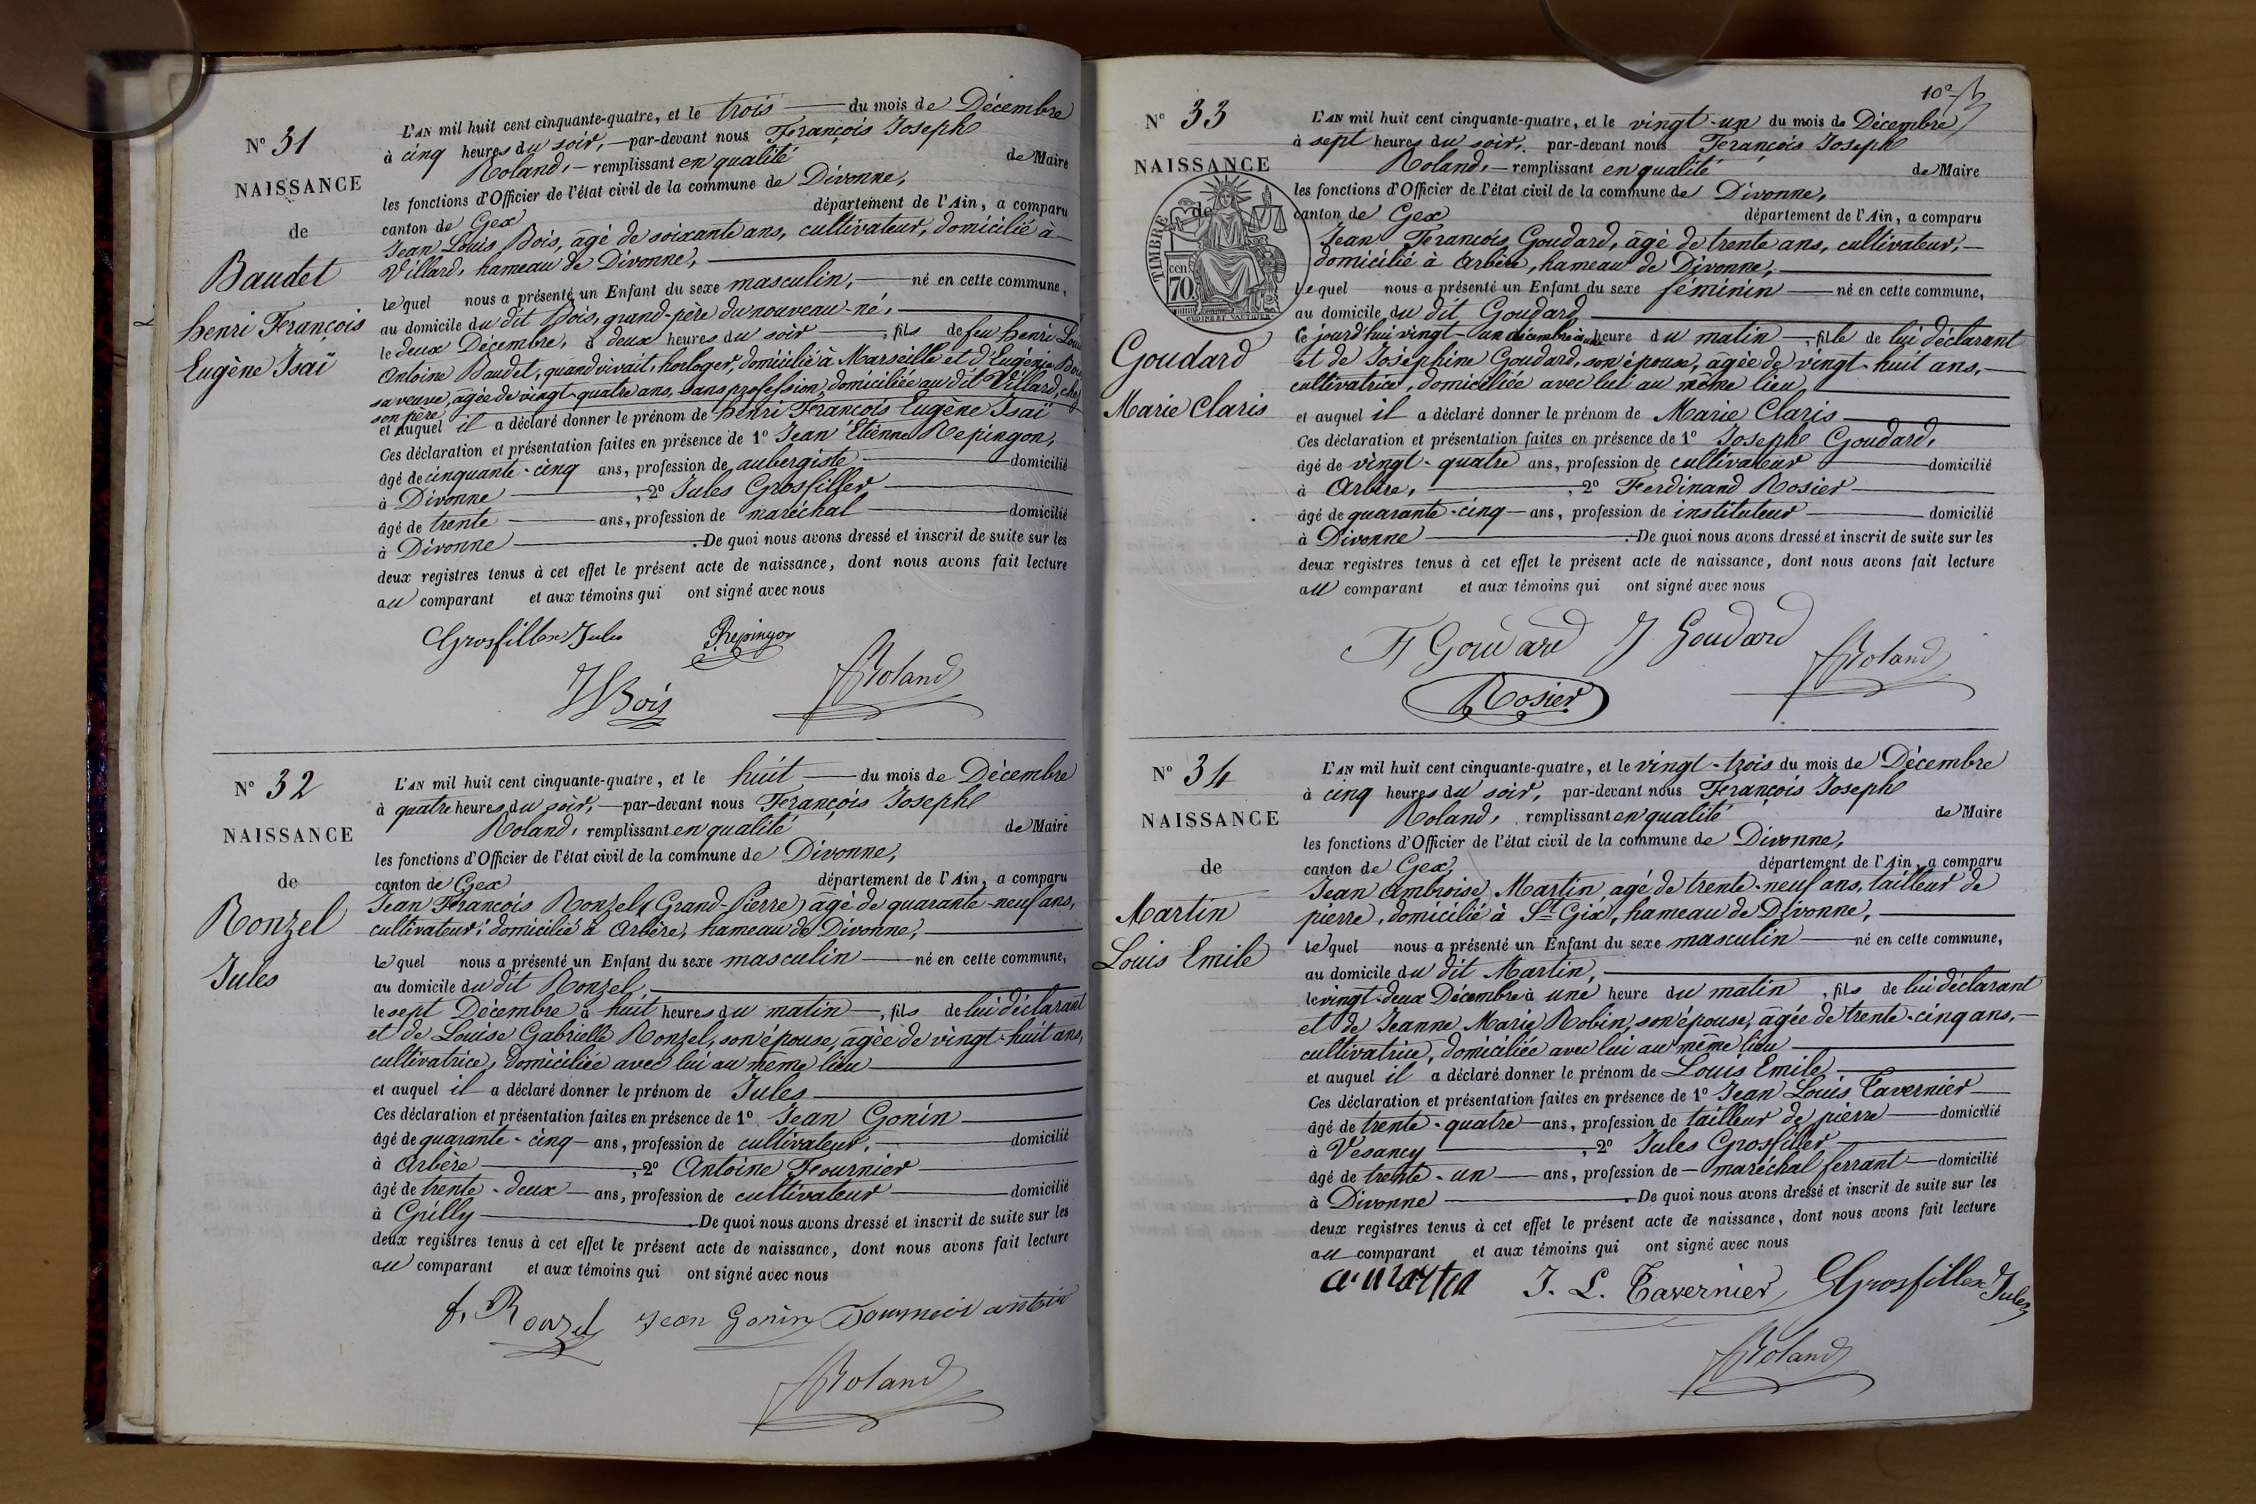 N° 31
NAISSANCE
de
Baudet
henri François
Eugène Isaï
L'AN mil huit cent cinquante-quatre, et le trois du mois de Décembre
à cinq heures du soir, par-devant nous François Joseph
Roland, remplissant en qualité de Maire
les fonctions d'Officier de l'état civil de la commune de Divonne,
canton de Gex département de l'Ain, a comparu
Jean Louis Bois, âgé de soixante ans, cultivateur, domicilié à
Villard, hameau de Divonne,
lequel nous a présenté un Enfant du sexe masculin, né en cette commune,
au domicile du dit Bois, grand-père du nouveau-né,
le deux Décembre, à deux heures du soir, fils de feu henri Louis
Antoine Baudet, quand vivait, horloger, domicilié à Marseille et d'Eugénie Bois
sa veuve, âgée de vingt-quatre ans, sans profession, domiciliée au dit Villard, chez
son père
et auquel il a déclaré donner le prénom de henri François Eugène Isaï
Ces déclaration et présentation faites en présence de 1° Jean Etienne Repingon,
âgé de cinquante-cinq ans, profession de aubergiste domicilié
à Divonne, 2° Jules Grosfiller
âgé de trente ans, profession de maréchal domicilié
à Divonne. De quoi nous avons dressé et inscrit de suite sur les
deux registres tenus à cet effet le présent acte de naissance, dont nous avons fait lecture
au comparant et aux témoins qui ont signé avec nous
Grosfiller Jules Repingon
Bois Roland
N° 32
NAISSANCE
de
Ronzel
Jules
L'AN mil huit cent cinquante-quatre, et le huit du mois de Décembre
à quatre heures du soir, par-devant nous François Joseph
Roland, remplissant en qualité de Maire
les fonctions d'Officier de l'état civil de la commune de Divonne,
canton de Gex département de l'Ain, a comparu
Jean François Ronzel (Grand-Pierre) âgé de quarante-neuf ans,
cultivateur, domicilié à Arbère, hameau de Divonne,
lequel nous a présenté un Enfant du sexe masculin né en cette commune,
au domicile du dit Ronzel,
le sept Décembre à huit heures du matin, fils de lui déclarant
et de Louise Gabrielle Ronzel, son épouse, âgée de vingt-huit ans,
cultivatrice, domiciliée avec lui au même lieu
et auquel il a déclaré donner le prénom de Jules
Ces déclaration et présentation faites en présence de 1° Jean Gonin
âgé de quarante-cinq ans, profession de cultivateur, domicilié
à Arbère, 2° Antoine Fournier
âgé de trente-deux ans, profession de cultivateur domicilié
à Grilly. De quoi nous avons dressé et inscrit de suite sur les
deux registres tenus à cet effet le présent acte de naissance, dont nous avons fait lecture
au comparant et aux témoins qui ont signé avec nous
f. Ronzel Jean Gonin Fournier antoin
Roland
N° 33
NAISSANCE
de
TIMBRE
70
Goudard
Marie Claris
L'AN mil huit cent cinquante-quatre, et le vingt-un du mois de Décembre
à sept heures du soir, par-devant nous François Joseph
Roland, remplissant en qualité de Maire
les fonctions d'Officier de l'état civil de la commune de Divonne,
canton de Gex département de l'Ain, a comparu
Jean François Goudard, âgé de trente ans, cultivateur,
domicilié à Arbère, hameau de Divonne,
lequel nous a présenté un Enfant du sexe féminin né en cette commune,
au domicile du dit Goudard
ce jourd'hui vingt-un décembre à une heure du matin, fille de lui déclarant
et de Joséphine Goudard, son épouse, âgée de vingt-huit ans,
cultivatrice, domiciliée avec lui au même lieu
et auquel il a déclaré donner le prénom de Marie Claris
Ces déclaration et présentation faites en présence de 1° Joseph Goudard,
âgé de vingt-quatre ans, profession de cultivateur domicilié
à Arbère, 2° Ferdinand Rosier
âgé de quarante-cinq ans, profession de instituteur domicilié
à Divonne. De quoi nous avons dressé et inscrit de suite sur les
deux registres tenus à cet effet le présent acte de naissance, dont nous avons fait lecture
au comparant et aux témoins qui ont signé avec nous
F Goudard J Goudard
Rosier Roland
N° 34
NAISSANCE
de
Martin
Louis Emile
L'AN mil huit cent cinquante-quatre, et le vingt-trois du mois de Décembre
à cinq heures du soir, par-devant nous François Joseph
Roland, remplissant en qualité de Maire
les fonctions d'Officier de l'état civil de la commune de Divonne,
canton de Gex, département de l'Ain, a comparu
Jean Ambroise Martin, agé de trente-neuf ans, tailleur de
pierre, domicilié à St Gix, hameau de Divonne,
lequel nous a présenté un Enfant du sexe masculin né en cette commune,
au domicile du dit Martin,
le vingt-deux Décembre à une heure du matin, fils de lui déclarant
et de Jeanne Marie Robin, son épouse, âgée de trente-cinq ans,
cultivatrice, domiciliée avec lui au même lieu
et auquel il a déclaré donner le prénom de Louis Emile
Ces déclaration et présentation faites en présence de 1° Jean Louis Tavernier
âgé de trente-quatre ans, profession de tailleur de pierre domicilié
à Vesancy, 2° Jules Grosfiller
âgé de trente-un ans, profession de maréchal ferrant domicilié
à Divonne. De quoi nous avons dressé et inscrit de suite sur les
deux registres tenus à cet effet le présent acte de naissance, dont nous avons fait lecture
au comparant et aux témoins qui ont signé avec nous
J. L. Tavernier Grosfiller Jules
Roland